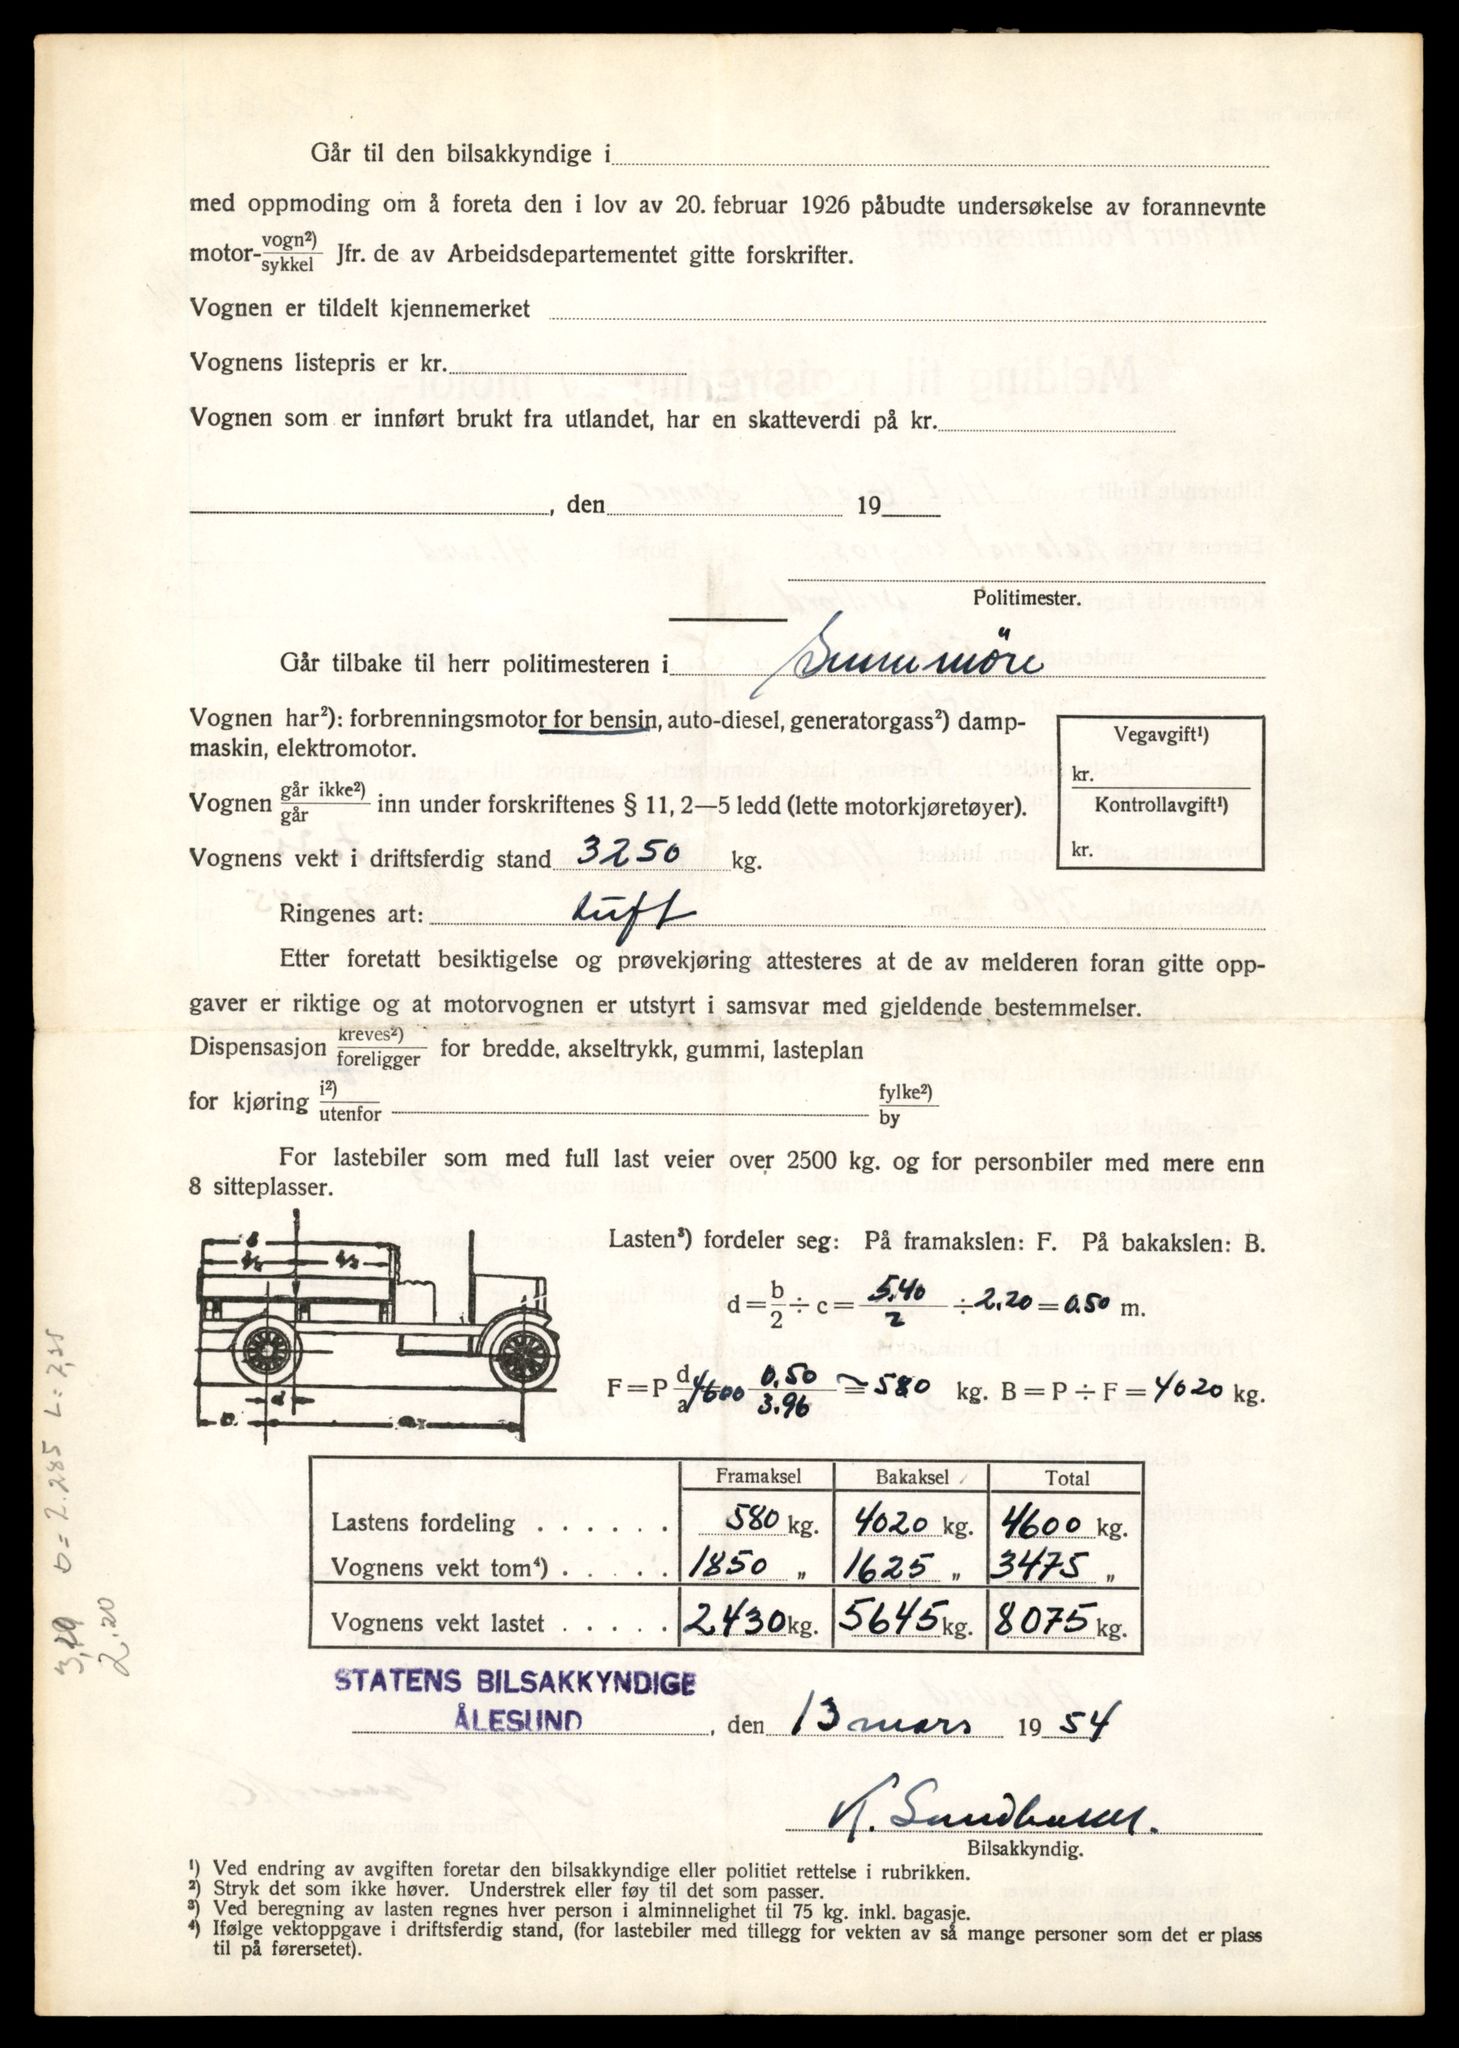 Går til den bilsakkyndige i
med oppmoding om å foreta den i lov av 20. februar 1926 påbudte undersøkelse av forannevnte
motor-vogn²)/sykkel Jfr. de av Arbeidsdepartementet gitte forskrifter.
Vognen er tildelt kjennemerket
Vognens listepris er kr.
Vognen som er innført brukt fra utlandet, har en skatteverdi på kr.
, den 19
Politimester.
Går tilbake til herr politimesteren i Sunnmöre
Vognen har²): forbrenningsmotor for bensin, auto-diesel, generatorgass²) damp-
maskin, elektromotor.
Vegavgift¹)
kr.
Kontrollavgift¹)
kr.
Vognen går ikke²)/går inn under forskriftenes § 11, 2—5 ledd (lette motorkjøretøyer).
Vognens vekt i driftsferdig stand 3250 kg.
Ringenes art: luft
Etter foretatt besiktigelse og prøvekjøring attesteres at de av melderen foran gitte opp-
gaver er riktige og at motorvognen er utstyrt i samsvar med gjeldende bestemmelser.
Dispensasjon kreves²)/foreligger for bredde, akseltrykk, gummi, lasteplan
for kjøring i²)/utenfor fylke²)/by
For lastebiler som med full last veier over 2500 kg. og for personbiler med mere enn
8 sitteplasser.
Lasten³) fordeler seg: På framakslen: F. På bakakslen: B.
d = b/2 ÷ c = 5.40/2 ÷ 2.20 = 0.50 m.
F = P d/a 4600 0.50/3.96 = 580 kg. B = P ÷ F = 4020 kg.
Framaksel Bakaksel Total
Lastens fordeling . . . . . . 580 kg. 4020 kg. 4600 kg.
Vognens vekt tom⁴) . . . . . 1850 „ 1625 „ 3475 „
Vognens vekt lastet . . . . . 2430 kg. 5645 kg. 8075 kg.
STATENS BILSAKKYNDIGE
ÅLESUND, den 13 mars 19 54
K. Sundbakk.
Bilsakkyndig.
¹) Ved endring av avgiften foretar den bilsakkyndige eller politiet rettelse i rubrikken.
²) Stryk det som ikke høver. Understrek eller føy til det som passer.
³) Ved beregning av lasten regnes hver person i alminnelighet til 75 kg. inkl. bagasje.
⁴) Ifølge vektoppgave i driftsferdig stand, (for lastebiler med tillegg for vekten av så mange personer som det er plass
til på førersetet).
b = 2.285
2.20